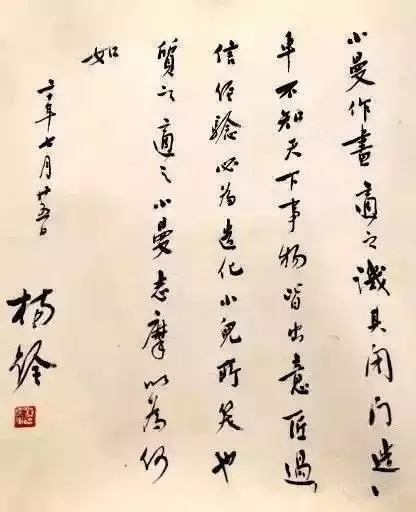 小曼作畫適之譏其閉門造
車不知天下事物皆出意匠過
信經驗必為造化小兒所笑也
質之適之小曼志摩以為何
如
二十年七月廿五日
楊銓